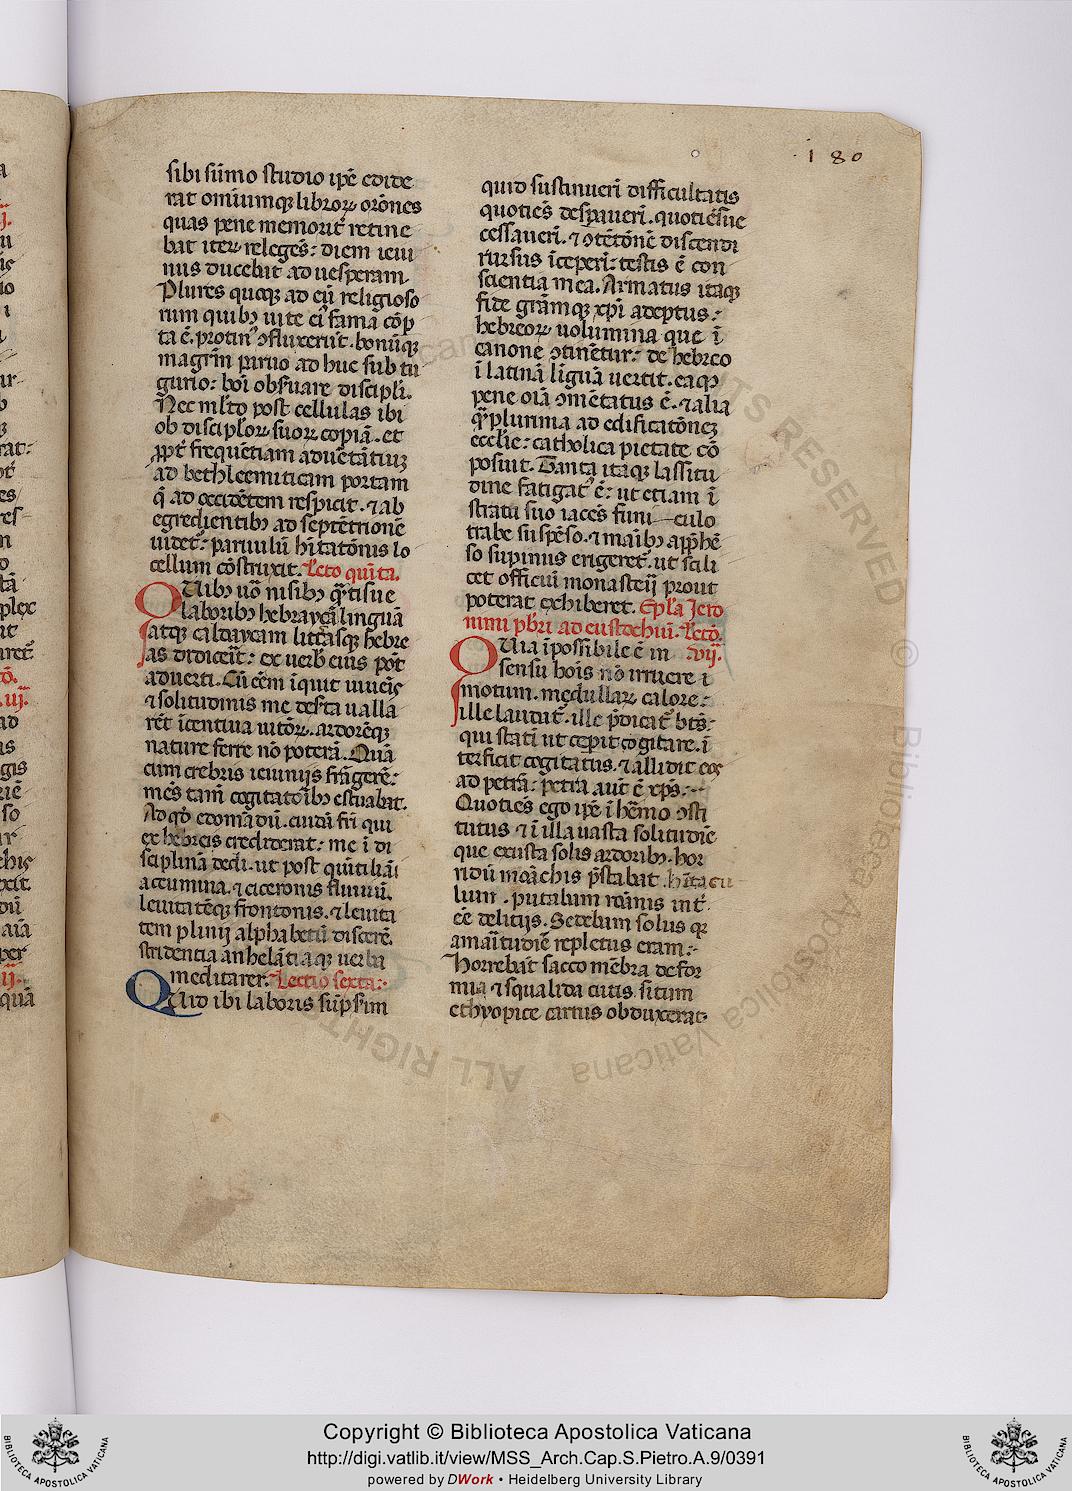 180
sibi sūmo studio ip̄e edide
rat omiumqꝫ libroꝝ orōnes
quas pene memorit̄ retine
bat iteꝝ relegēs: diem ieiu
nus ducebat ad uesperam
Plures quoqꝫ ad eū religioso
rum quibꝫ uite eiꝰ fama cōp
ta ē. protinꝰ ꝯfluxerūt. bonūqꝫ
magrm̄ paruo ad huc sub tu
gurio: boī obs̄uare discipli.
Nec ml̄to post cellulas ibi
ob discipl̄oꝝ suoꝝ copiā. et
ꝓpt̄ frequētiam aduētātiuꝫ
ad bethleemiticam portam
q̄ ad occidētem respicit. ⁊ ab
egredientibꝫ ad septētrionē
uidet᷑: paruulū hītatōnis lo
cellum cōstruxit. Lcto quīta.
Quibꝫ uō nisibꝫ q̄ntisue
laboribꝫ hebraycā linguā
atqꝫ caldaycam litt̄asqꝫ hebre
as didicerīt: ex uerbꝫ eius pot̄
aduerti. Cū eēm iquit iuueīs
⁊ solitudinis me deserta ualla
rēt īcentiua uitioꝝ. ardorēqꝫ
nature ferre nō poterā. Quā
cum crebris ieiunijs frāgerē:
mēs tam̄ cogitatōibꝫ estuabat.
Ad qd̄ edomādū. cuidā fr̄i qui
ex hebreis crediderat: me ī di
sciplinā dedi. ut post quītiliāi
accumina. ⁊ ciceronis fluuiū.
leuitatēqꝫ frontonis. ⁊ leuita
tem plinij alphabetū discerē.
stridentia anhelātiaqꝫ uerba
meditarer. Lectio sexta:
Quid ibi laboris sūpsim
quid sustinueri difficultatis
quoties despaueri. quotiēsue
cessaueri. ⁊ ꝯtētōnē discendi
rursus īceperi: testis ē con
scientia mea. Armatus itaqꝫ
fide grāmqꝫ xp̄i adeptus:
hebreoꝝ uolumina que ī
canone ꝯtinētur: de hebreo
ī latinā līguā uertit. eaqꝫ
pene oīa ꝯmētatus ē. ⁊ alia
q̄plurima ad edificatōneꝫ
eccl̄ie: catholica pietate cō
posuit. Tanta itaqꝫ lassitu
dine fatigatꝰ ē: ut etiam ī
stratu suo iacēs funi culo
trabe suspēso. ⁊ maībꝫ app̄hē
so supinus erigeret᷑. ut scili
cet officiū monasterij prout
poterat exhiberet. Epl̄a Jero
nimi pb̄ri ad eustochiū. Lcto.
Quia īpossibile ē in .vij.
sensu hoīs nō irruere ī
motum. medullaꝝ calore:
ille laudat᷑. ille p̄dicat᷑ bt̄s:
qui statī ut ceperit cogitare. ī
terficit cogitatus. ⁊ allidit eos
ad petrā: petra aut̄ ē xp̄s:
Quotiēs ego ip̄e ī hēmo ꝯsti
tutus ⁊ ī illa uasta solitudīe
que exusta solis ardoribꝫ. hor
ridū monachis p̄stabat hītacu
lum. putabam romis int̄
ēē delitijs. Sedebam solus qꝛ
amaītudīe repletus eram:
Horrebāt sacco mēbra defor
mia ⁊ squalida cutis. situm
ethyopice carnis obduxerat.
Copyright © Biblioteca Apostolica Vaticana
http://digi.vatlib.it/view/MSS_Arch.Cap.S.Pietro.A.9/0391
powered by DWork • Heidelberg University Library